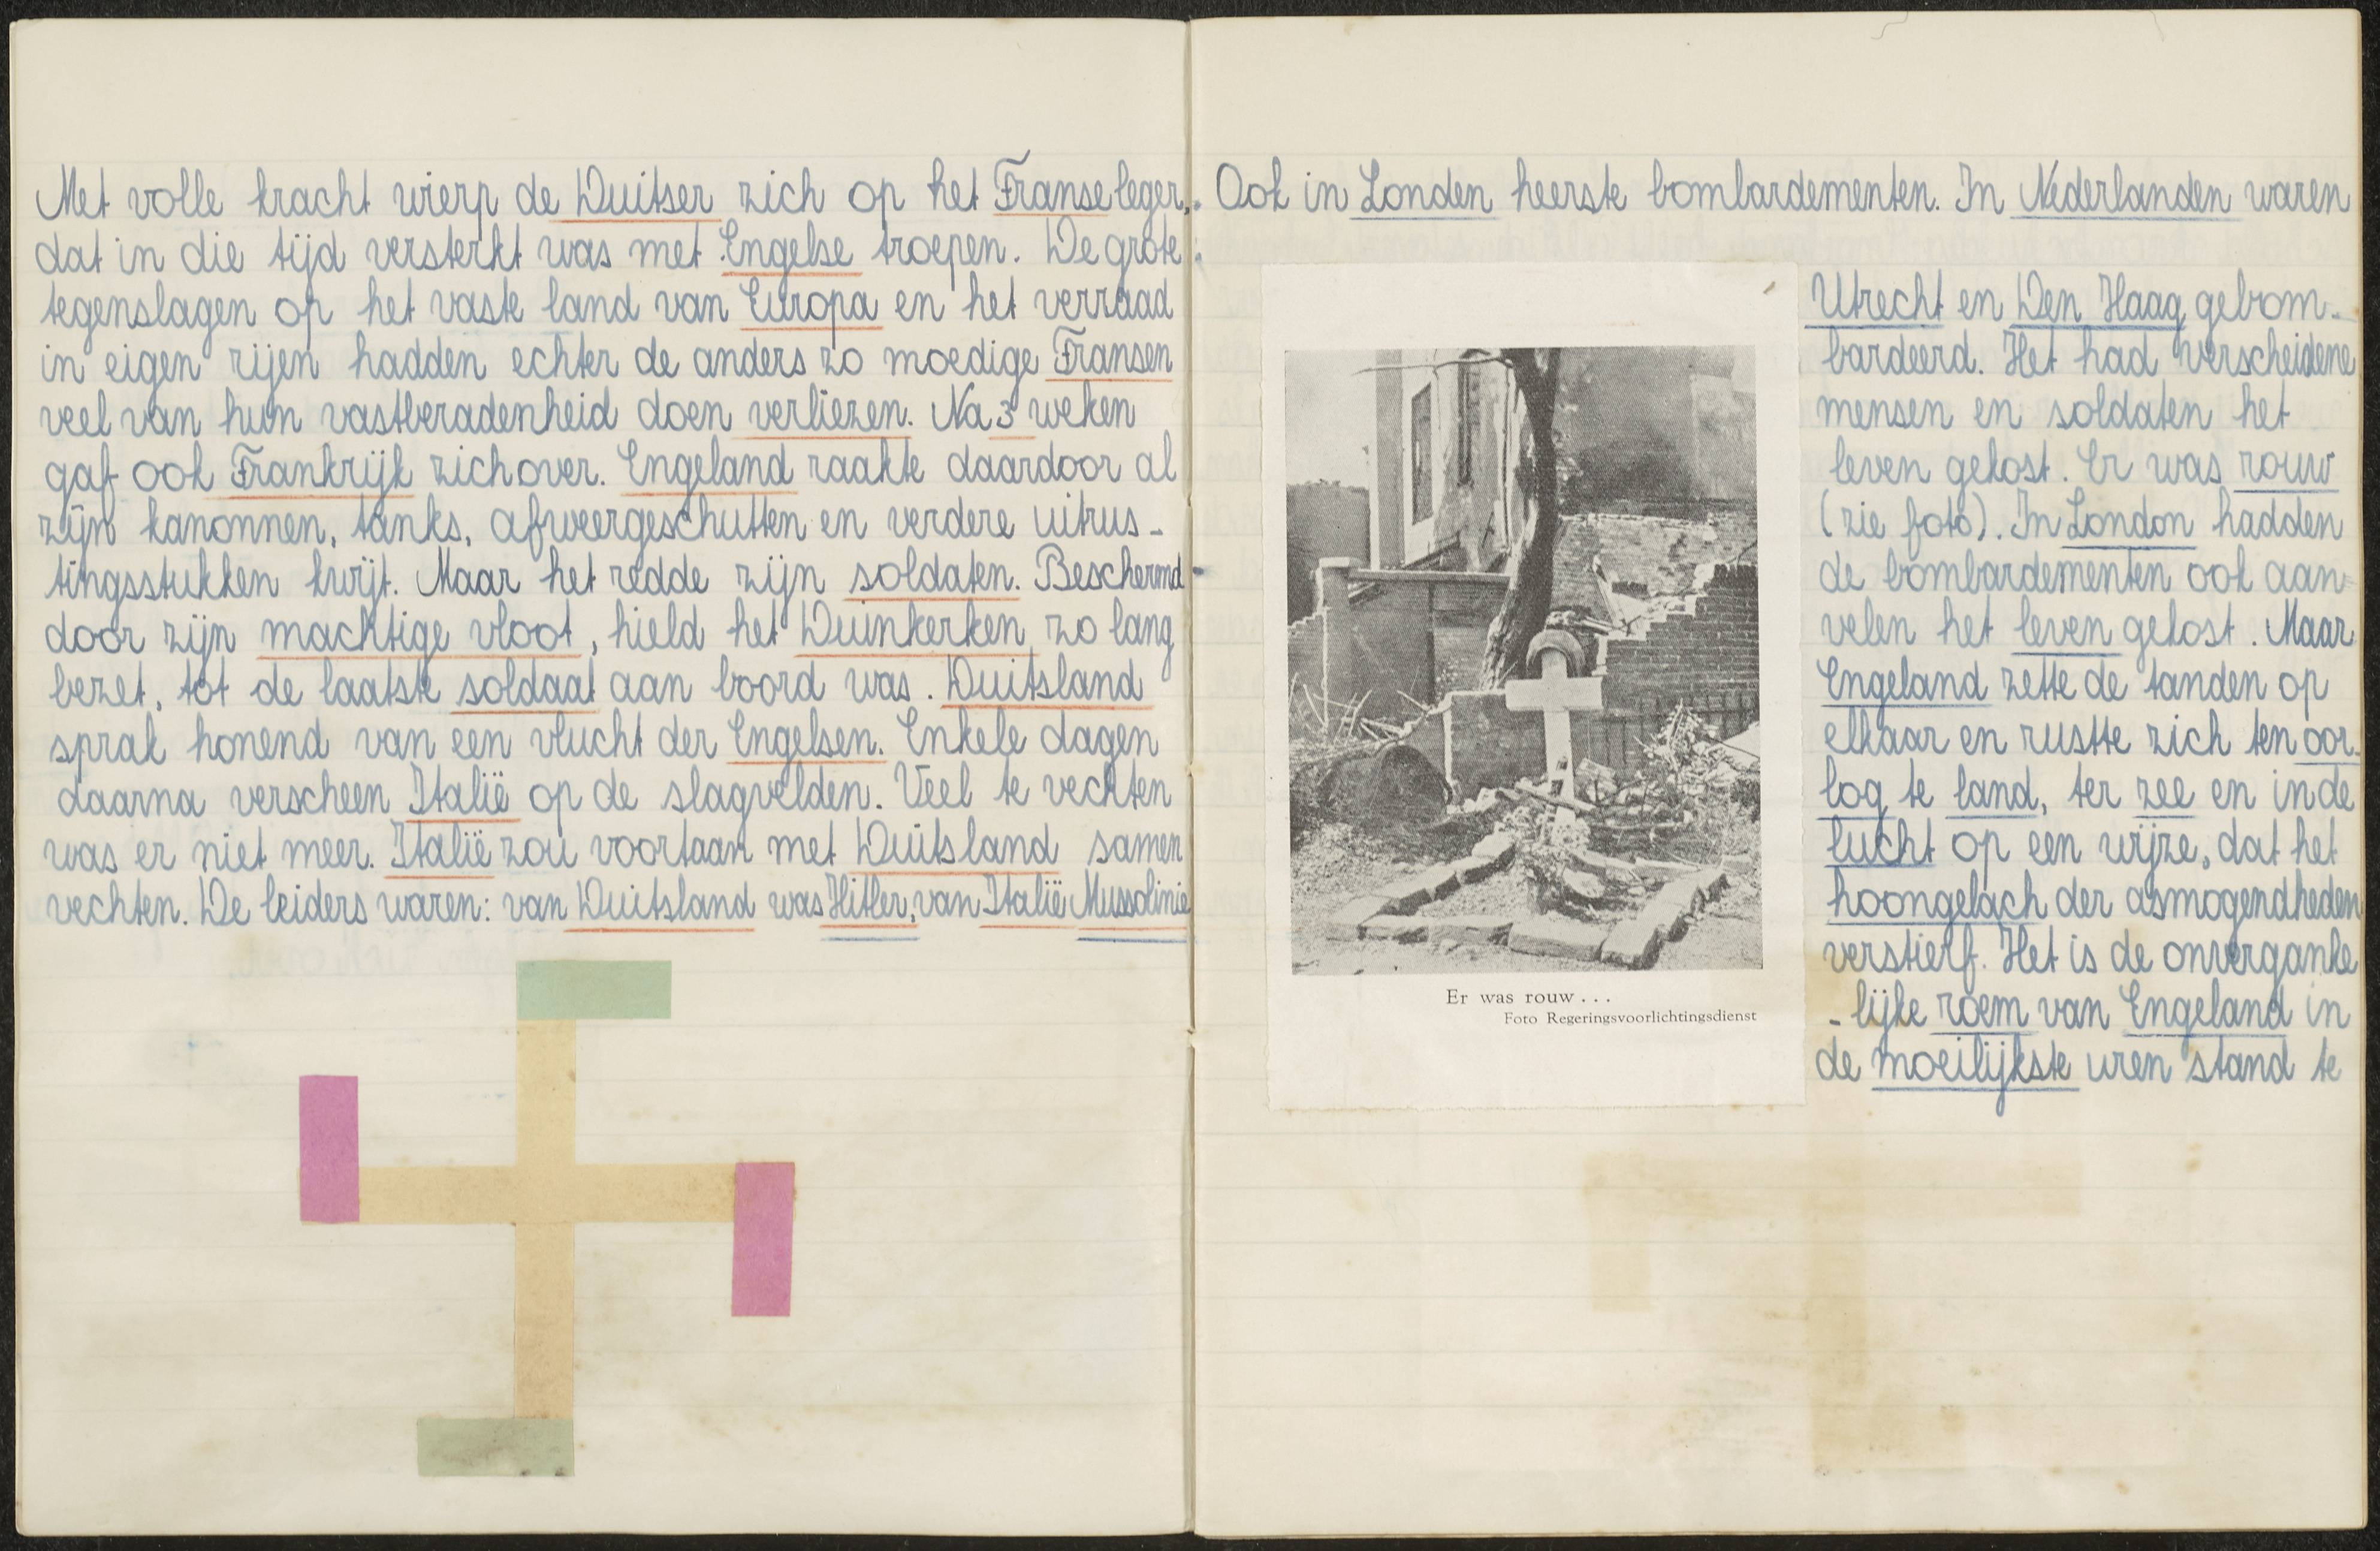 Met volle kracht wierp de Duitser zich op het Franse leger,
dat in die tijd versterkt was met Engelse troepen. De grote
tegenslagen op het vaste land van Europa en het verraad
in eigen rijen hadden echter de anders zo moedige Fransen
veel van hun vastberadenheid doen verliezen. Na 3 weken
gaf ook Frankrijk zich over. Engeland raakte daardoor al
zijn kanonnen, tanks, afweergeschutten en verdere uitrus-
tingsstukken kwijt. Maar het redde zijn soldaten. Beschermd
door zijn machtige vloot, hield het Duinkerken zo lang
bezet, tot de laatste soldaat aan boord was. Duitsland
sprak honend van een vlucht der Engelsen. Enkele dagen
daarna verscheen Italië op de slagvelden. Veel te vechten
was er niet meer. Italië zou voortaan met Duitsland samen
vechten. De leiders waren: van Duitsland was Hitler, van Italië Mussolinie
Ook in Londen heerste bombardementen. In Nederlanden waren
Utrecht en Den Haag gebom-
bardeerd. Het had verscheidene
mensen en soldaten het
leven gekost. Er was rouw
(zie foto). In London hadden
de bombardementen ook aan
velen het leven gekost. Maar
Engeland zette de tanden op
elkaar en rustte zich ten oor-
log te land, ter zee en in de
lucht op een wijze, dat het
hoongelach der asmogendheden
verstierf. Het is de onverganke
-lijke roem van Engeland in
de moeilijkste uren stand te
Er was rouw...
Foto Regeringsvoorlichtingsdienst